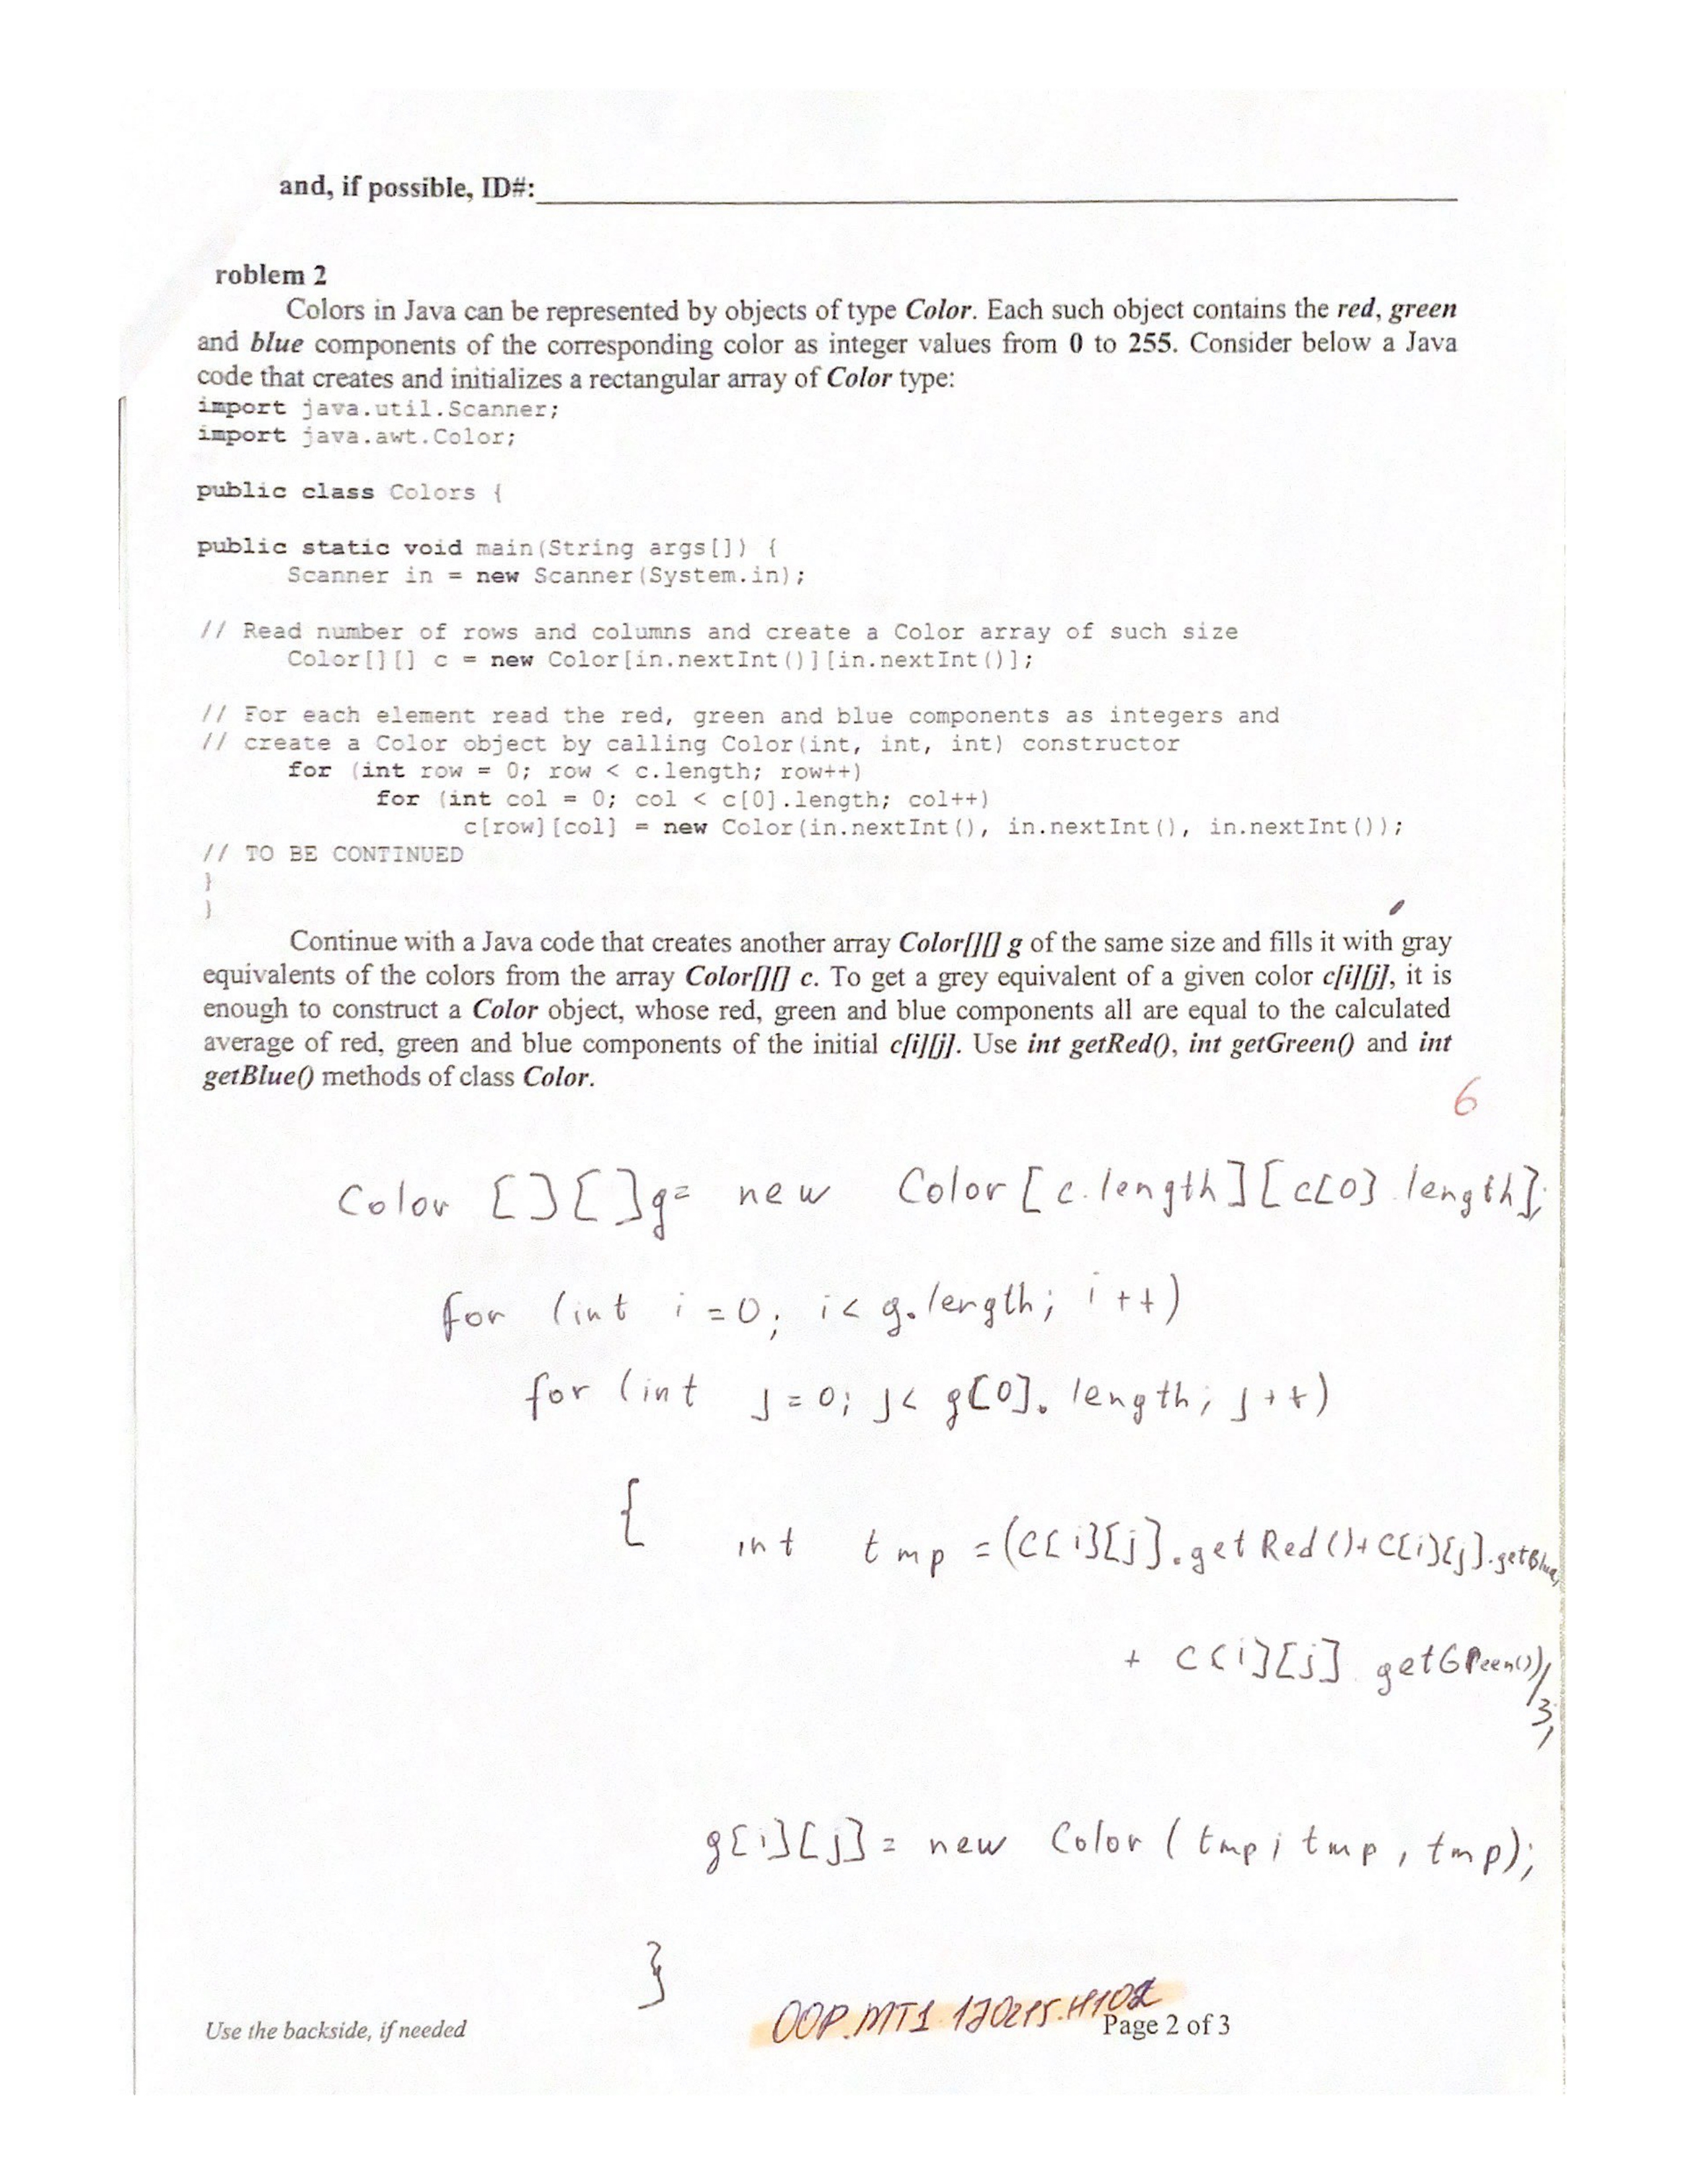 and, if possible, ID#:
roblem 2
Colors in Java can be represented by objects of type Color. Each such object contains the red, green
and blue components of the corresponding color as integer values from 0 to 255. Consider below a Java
code that creates and initializes a rectangular array of Color type:
import java.util.Scanner;
import java.awt.Color;
public class Colors {
public static void main(String args[]) {
Scanner in = new Scanner(System.in);
// Read number of rows and columns and create a Color array of such size
Color[][] c = new Color[in.nextInt()][in.nextInt()];
// For each element read the red, green and blue components as integers and
// create a Color object by calling Color(int, int, int) constructor
for (int row = 0; row < c.length; row++)
for (int col = 0; col < c[0].length; col++)
c[row][col] = new Color(in.nextInt(), in.nextInt(), in.nextInt());
// TO BE CONTINUED
}
}
Continue with a Java code that creates another array Color[][] g of the same size and fills it with gray
equivalents of the colors from the array Color[][] c. To get a grey equivalent of a given color c[i][j], it is
enough to construct a Color object, whose red, green and blue components all are equal to the calculated
average of red, green and blue components of the initial c[i][j]. Use int getRed(), int getGreen() and int
getBlue() methods of class Color.
6
Color [][]g= new Color[c.length][c[0].length];
for (int i=0; i< g.length; i++)
for (int j=0; j< g[0].length; j++)
{ int tmp =(c[i][j].getRed()+c[i][j].getBlue
+ c[i][j].getGreen())/
3;
g[i][j]= new Color (tmp; tmp, tmp);
}
Use the backside, if needed
Page 2 of 3